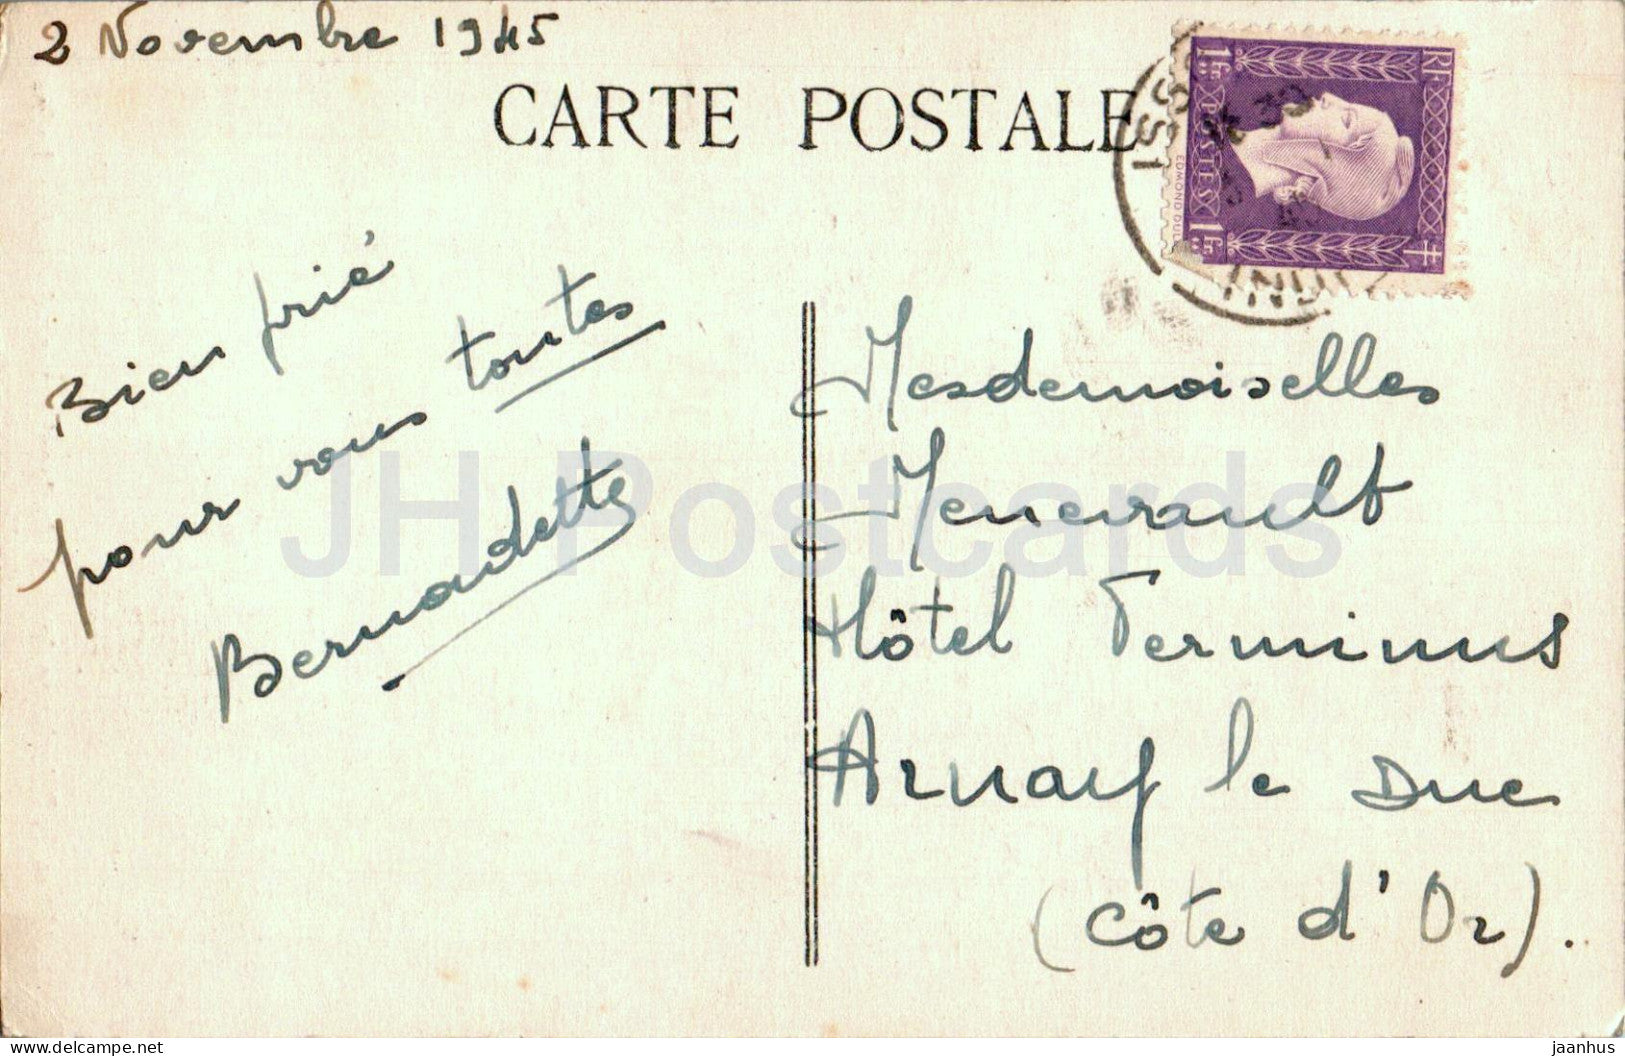 2 Novembre 1945
CARTE POSTALE
RF
1F50
POSTES
1F50
EDMOND DUL
Bien prié
pour vous toutes
Bernadette
Mesdemoiselles
Menerault
Hôtel Terminus
Arnay le Duc
(Côte d'Or).
JH Postcards
delcampe.net
jaanhus